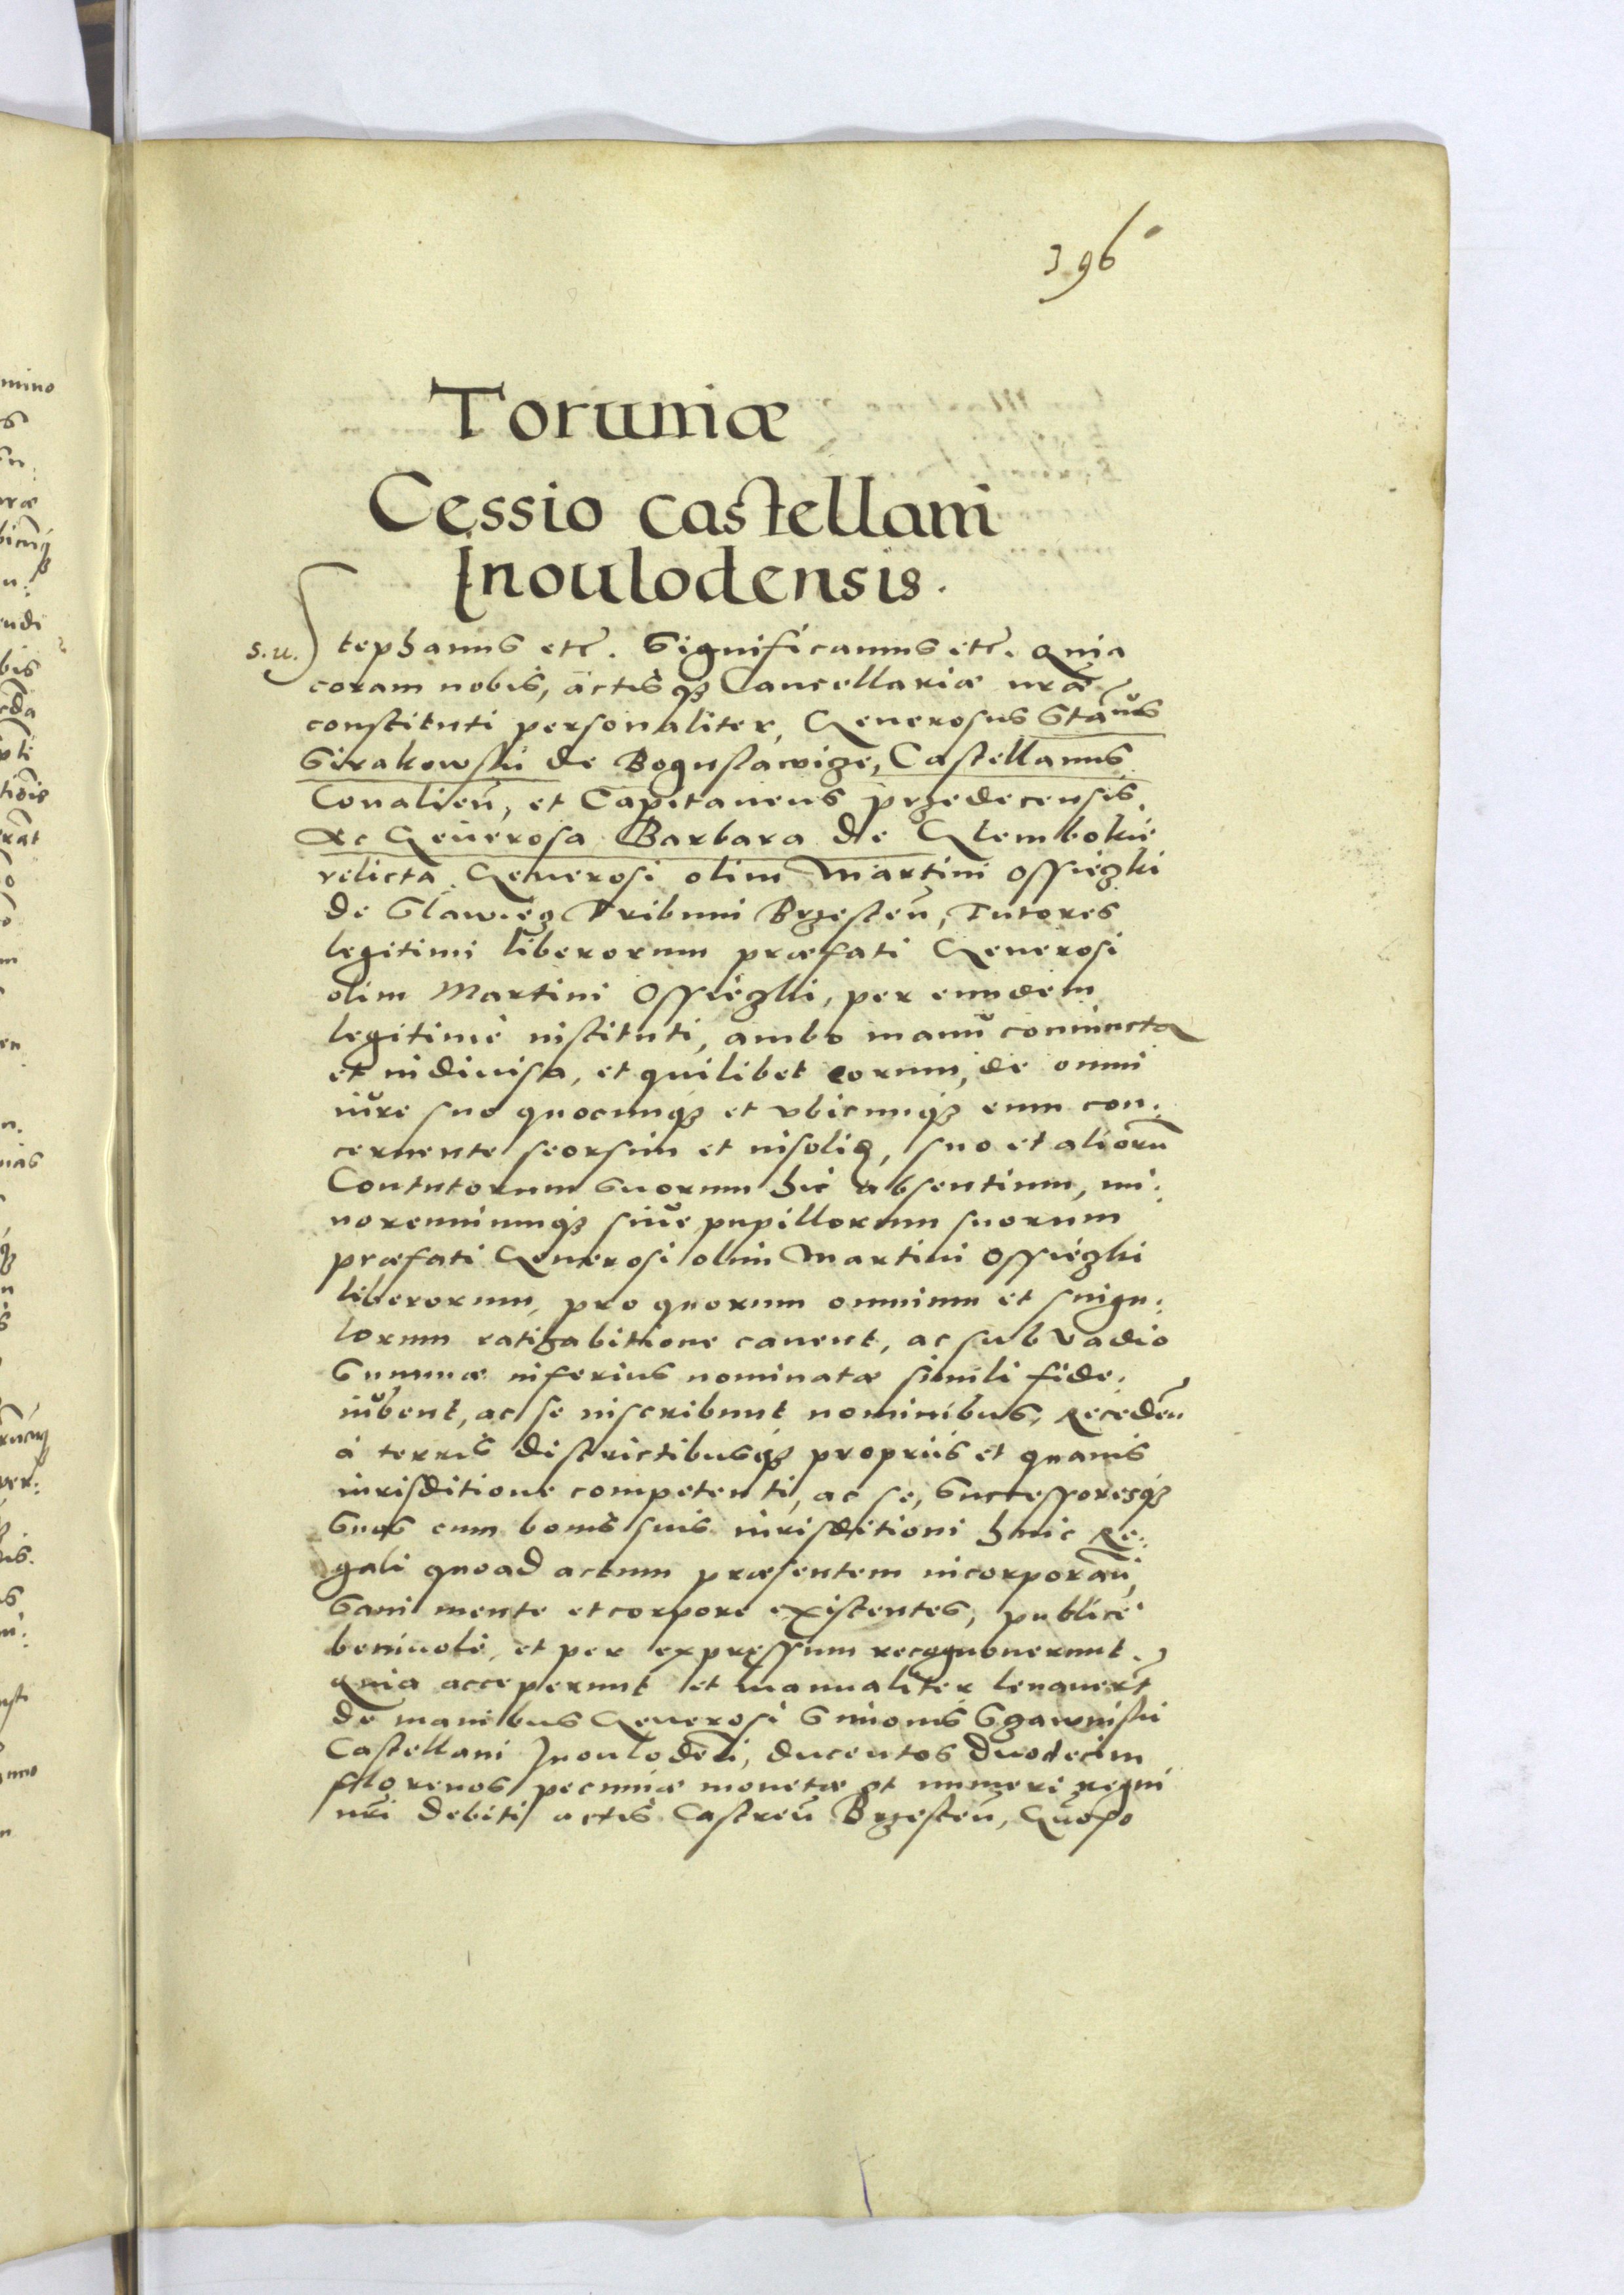 396
Toruniæ
Cessio castellani
Inoulodensis.
s.u. Stephanus etc̃. Significamus etc̃. Quia
coram nobis, actisq́ꝫ Cancellariæ nr̃æ
constituti personaliter, Generosus Stãus
Sirakowski de Boguslawize, Castellanus
Coualieñ, et Capitaneus przedecensis,
Ac Generosa Barbara de Glembokie
relicta Generosi olim Martini Ossięzki
de Slawięz Tribuni Brzesteñ, Tutores
legitimi liberorum præfati Generosi
olim Martini Ossięzki, per eundem
legitimè instituti, ambo manu coniuncta
et indiuisa, et quilibet eorum, de omni
iure suo quocunq́ꝫ et vbicunq́ꝫ eum con:
cernente seorsim et insolid, suo et aliorũ
Contutorum suorum hic absentium, mi:
norenniumq́ꝫ siue pupillorum suorum
præfati Generosi olim Martini Ossięzki
liberorum, pro quorum omnium et singu:
lorum ratihabitione cauent, ac sub vadio
Summæ inferius nominatæ simili fide:
iubent, ac se inscribunt nominibus, Recedeñ
à terris districtibusq́ꝫ propriis et quauis
iurisditione competenti, ac se, Successoresq́ꝫ
Suos cum bonis suis iurisditioni huic Re:
gali quoad actum præsentem incorporañ,
Sani mente et corpore existentes, publicè
beniuolè, et per expressum recognouerunt.
Quia acceperunt et manualiter leuauerũt
de manibus Generosi Simonis Szawinski
Castellani Inoulodeñ, ducentos duodecim
florenos pecuniæ monetæ et numeri regni
nr̃i debiti actis Castreñ Brzesteñ,